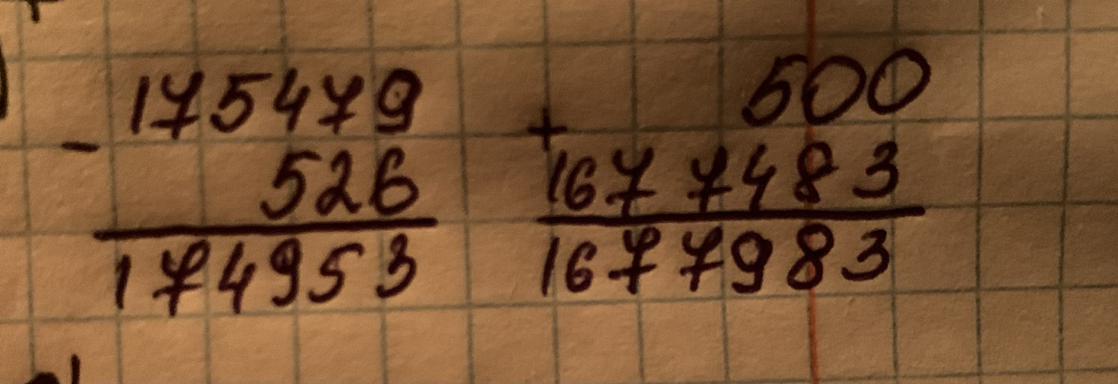 175479
- 526
174953
500
+ 1677483
1677983